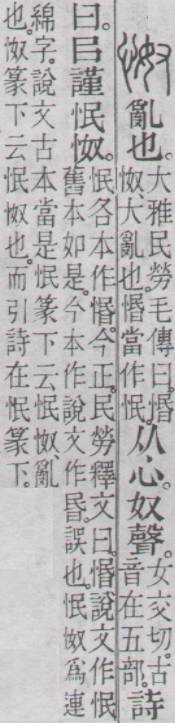 怓亂也。大雅民勞毛傳曰。惽怓大亂也。惽當作怋。从心。奴聲。女交切。古音在五部。詩
曰。㠯謹怋怓。怋各本作惽。今正。民勞釋文曰。惽說文作怋舊本如是。今本作說文作昬、誤也。怋怓爲連
綿字。說文古本當是怋篆下云怋怓、亂
也。怓篆下云怋怓也。而引詩在怋篆下。